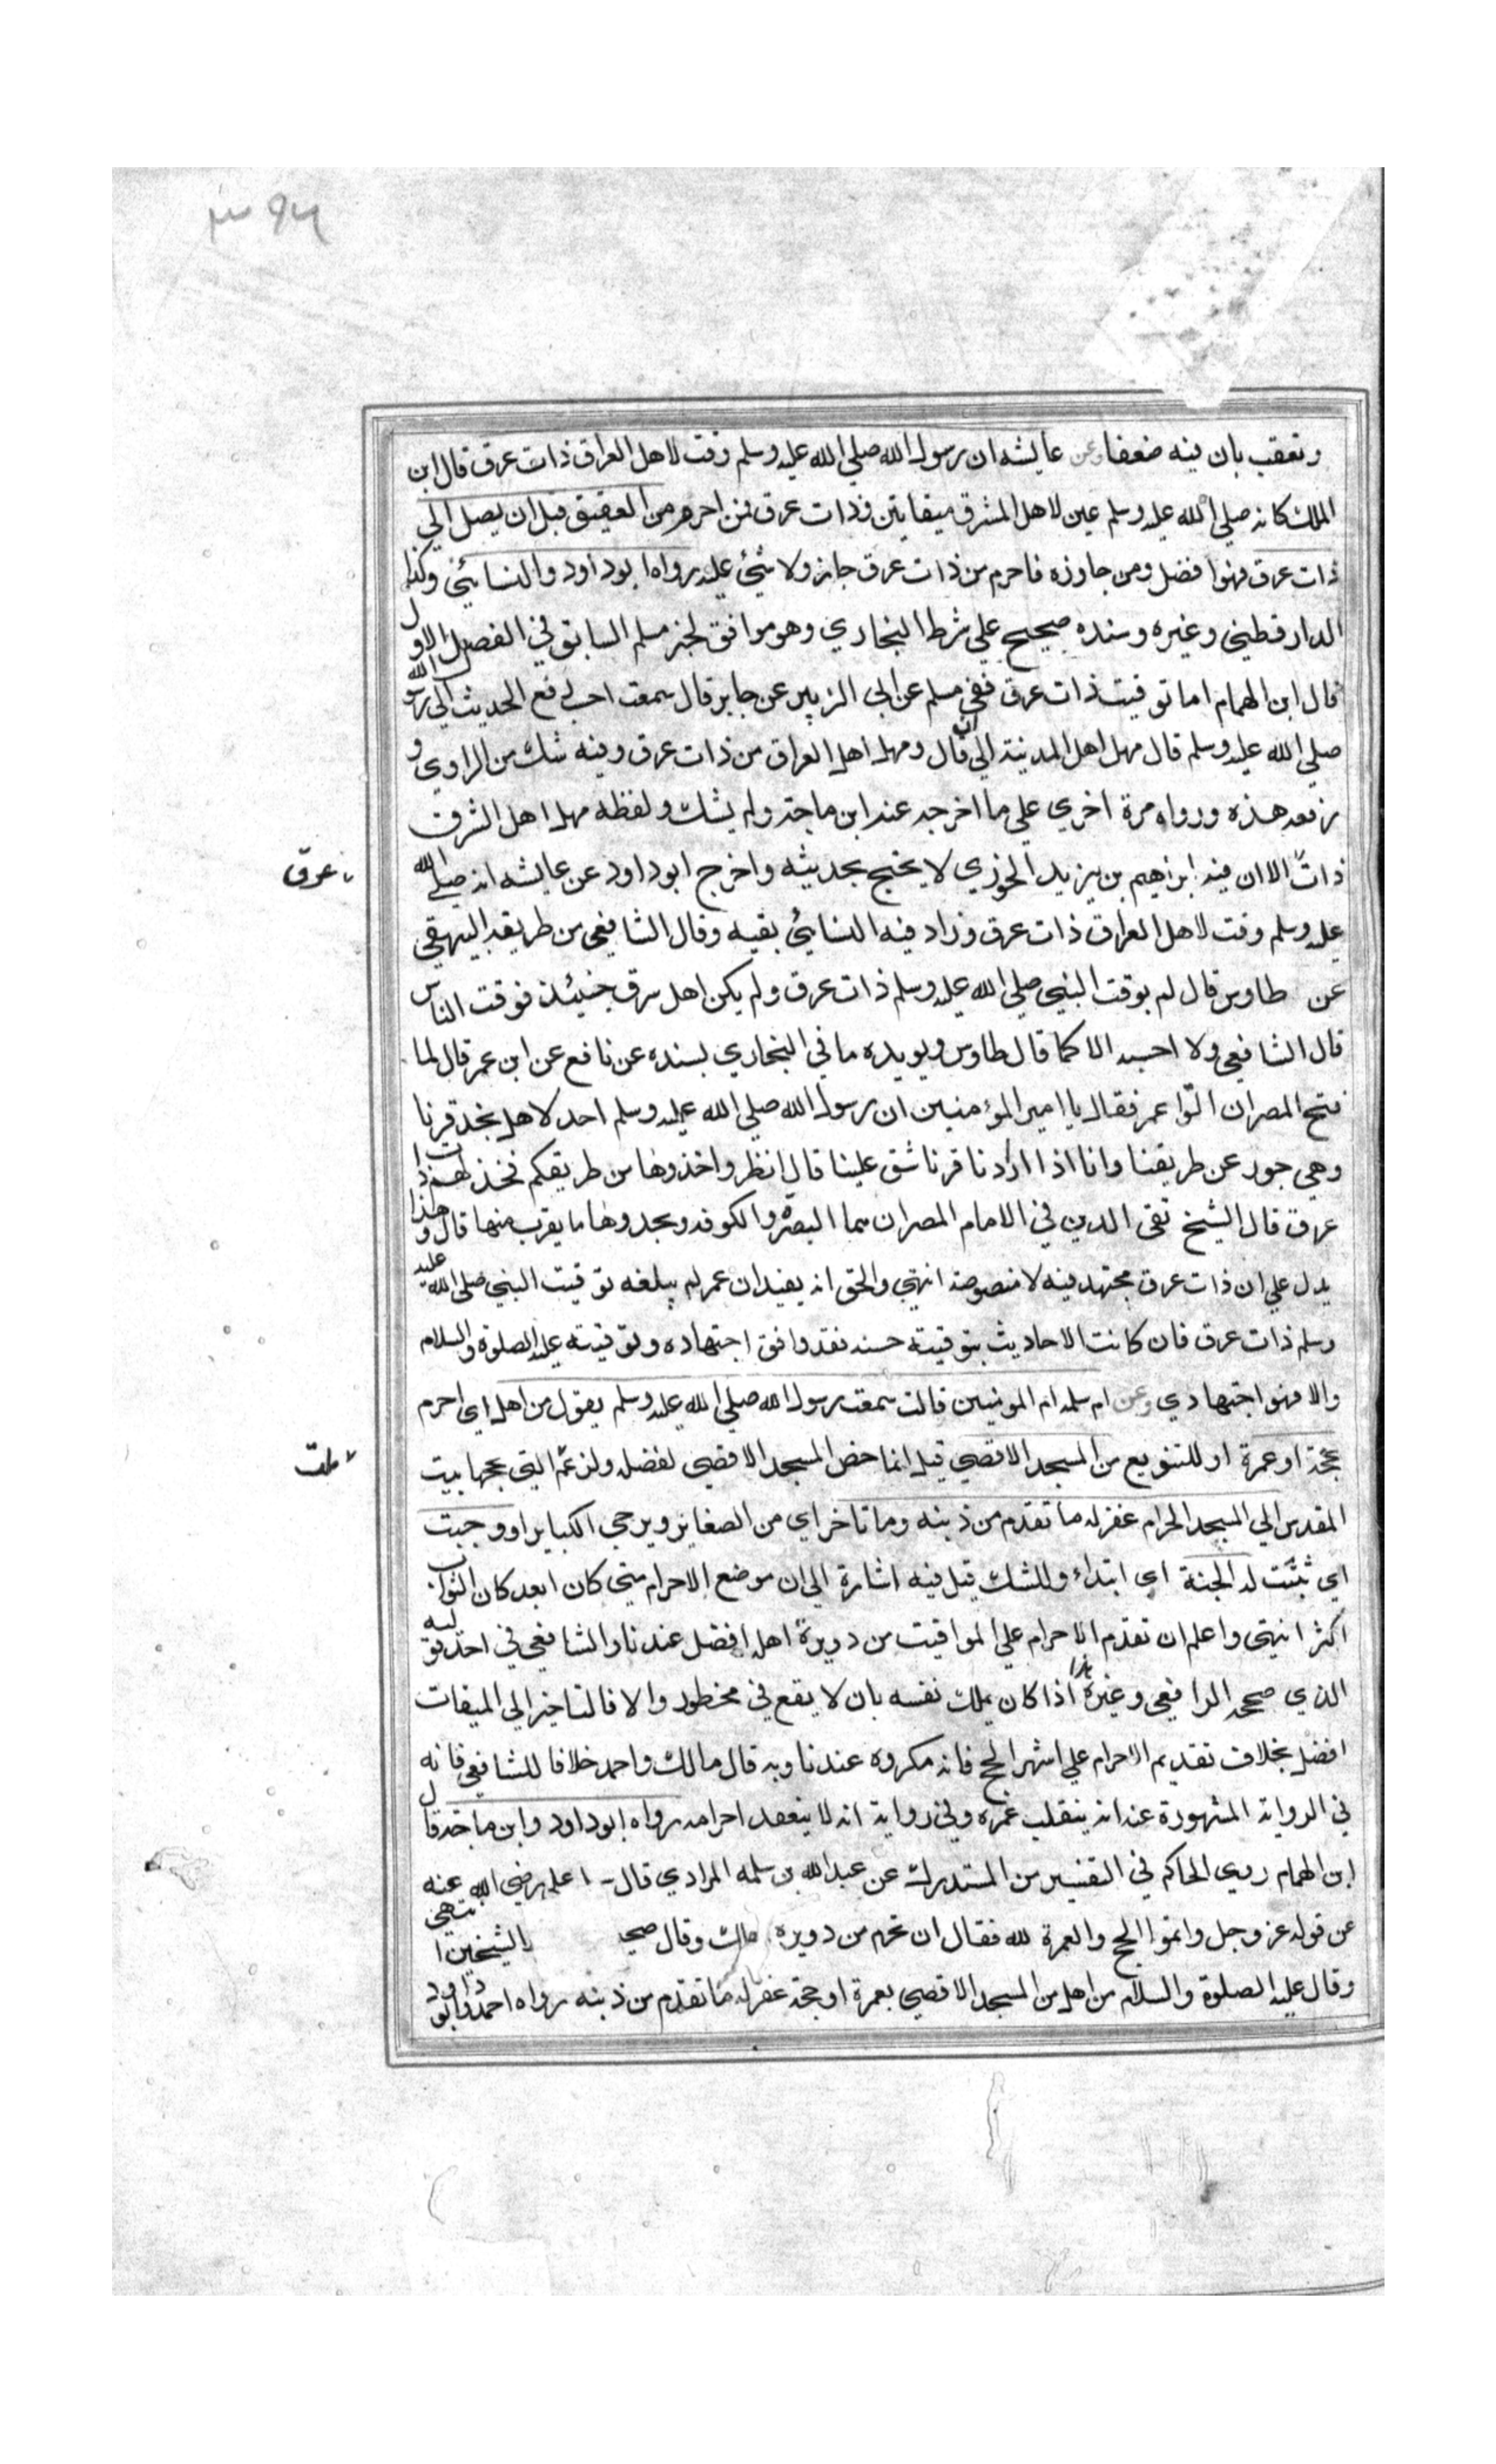 ٣٩٤
وتعقب بان فيه ضعفا وعن عايشه ان رسول الله صلي الله عليه وسلم وقت لاهل العراق ذات عرق قال ابن
الملك كانه صلي الله عليه وسلم عين لاهل المشرق ميقاتين فذات عرق فمن احرم من العقيق قبل ان يصل الي
ذات عرق فهو افضل ومن جاوزه فاحرم من ذات عرق جاز ولا شيئ عليه رواه ابوداود والنسائي وكذا
الدارقطيني وغيره وسنده صحيح علي شرط البخاري وهو موافق لخبر مسلم السابق في الفصل الاول
قال ابن الهمام اما توقيت ذات عرق ففي مسلم عن ابي الزبير عن جابر قال سمعت احسب رفع الحديث الي رسول الله
صلي الله عليه وسلم قال مهل اهل المدينة الي ان قال ومهل اهل العراق من ذات عرق وفيه شك من الراوي و
رفعه هذه ورواه مرة اخري علي ما اخرجه عند ابن ماجة ولم يشك ولفظه مهل اهل الشرق
ذات الا ان فيه ابراهيم بن يزيد الخوزي لا يحتج بحديثه واخرج ابوداود عن عايشه انه صلي الله
عرق
عليه وسلم وقت لاهل العراق ذات عرق وزاد فيه النسائي بقيه وقال الشافعي من طريقه البيهقي
عن طاوس قال لم يوقت النبي صلي الله عليه وسلم ذات عرق ولم يكن اهل شرق حينئذ فوقت الناس
قال الشافعي ولا احسبه الا كما قال طاوس ويويده ما في البخاري بسنده عن نافع عن ابن عمر قال لما
فتح المصران اتوا عمر فقال يا امير المؤمنين ان رسول الله صلي الله عليه وسلم احد لاهل نجد قرنا
وهي جور عن طريقنا وانا اذا اردنا قرنا شق علينا قال انظروا خذوها من طريقكم فخذ لهم ذات
عرق قال الشيخ تقي الدين في الامام المصران هما البصرة والكوفه وبحدوها ما يقرب منها قال وهذا
يدل علي ان ذات عرق مجتهد فيه لا منصوصة انتهي والحق انه يفيد ان عمر لم يبلغه توقيت النبي صلي الله عليه
وسلم ذات عرق فان كانت الاحاديث بتوقيته حسنه فقد وافق اجتهاده وتوقيته عليه الصلوة والسلام
والا فهو اجتهادي وعن ام سلمه ام المومنين قالت سمعت رسول الله صلي الله عليه وسلم يقول من اهل اي احرم
بحجة او عمرة او للتنويع من المسجد الاقصي قيل انما خص المسجد الاقصي لفضله ولرغم التي بيت
المقدس الي المسجد الحرام غفر له ما تقدم من ذنبه وما تاخر اي من الصغاير ويرجي الكباير او وجبت
اي ثبتت له الجنة اي ابتداء وللشك قيل فيه اشارة الي ان موضع الاحرام متي كان ابعد كان الثواب
اكثر انتهي واعلم ان تقدم الاحرام علي المواقيت من دويرة اهله افضل عندنا والشافعي في احد قوليه
الذي صححه الرافعي وغيره اذا كان يملك نفسه بان لا يقع في محظور والا فالتاخير الي الميقات
افضل بخلاف تقديم الاحرام علي اشهر الحج فانه مكروه عندنا وبه قال مالك واحمد خلافا للشافعي فانه
في الرواية المشهورة عنه انه ينقلب عمره وفي رواية انه لا ينعقد احرامه رواه ابوداود وابن ماجة قال
ابن الهمام روي الحاكم في التفسير من المستدرك عن عبدالله بن سلمه المرادي قال علي رضي الله عنه
عن قوله عز وجل واتموا الحج والعمرة لله فقال ان تحرم من دويره وقال صحيح الشيخين انتهي
وقال عليه الصلوة والسلام من اهل من المسجد الاقصي بعمرة او حجة غفر له ما تقدم من ذنبه رواه احمد وابو داود